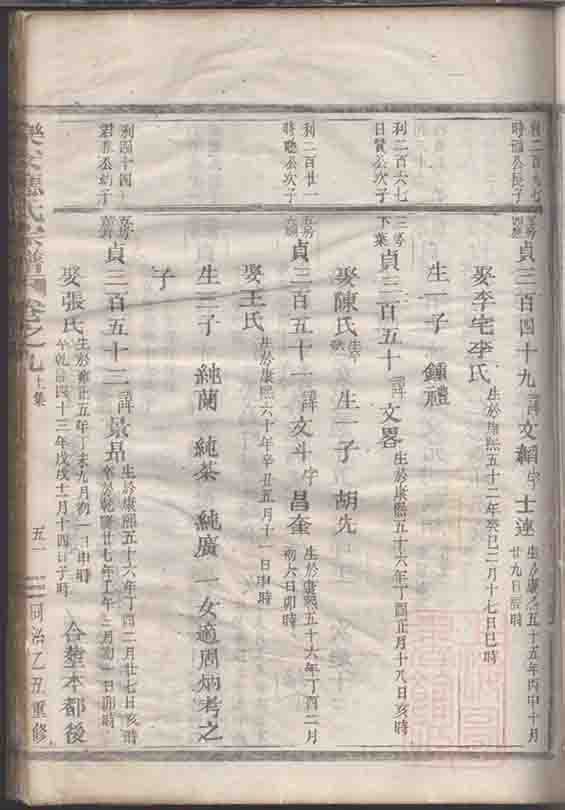 利二百六七
貞三百四十九 諱文綱 字士連 生於康熙五十五年丙申十月
廿九日辰時
娶李宅李氏 生於康熙五十二年癸巳二月十七日巳時
生一子 鍾禮
利二百六七
日贊公次子
三房
下葉
貞三百五十 諱文畧 生於康熙五十六年丁酉正月十八日亥時
娶陳氏 生卒 生一子 胡先
利二百廿一
時聰公次子
貞三百五十一 諱文斗 字昌奎 生於康熙五十六年丁酉二月
初六日卯時
娶王氏 生於康熙六十年辛丑五月十一日申時
生三子 純蘭 純茶 純廣 一女適周炳考之
子
利四百十四
貞三百五十三 諱景昂 生於康熙五十六年丁酉二月廿七日亥時
娶張氏 生於雍正五年丁未九月初一日申時
卒乾隆四十三年戊戌十二月十四日子時
合塟本都後
氏宗譜
卷之九 上集
五一
同治乙丑重修